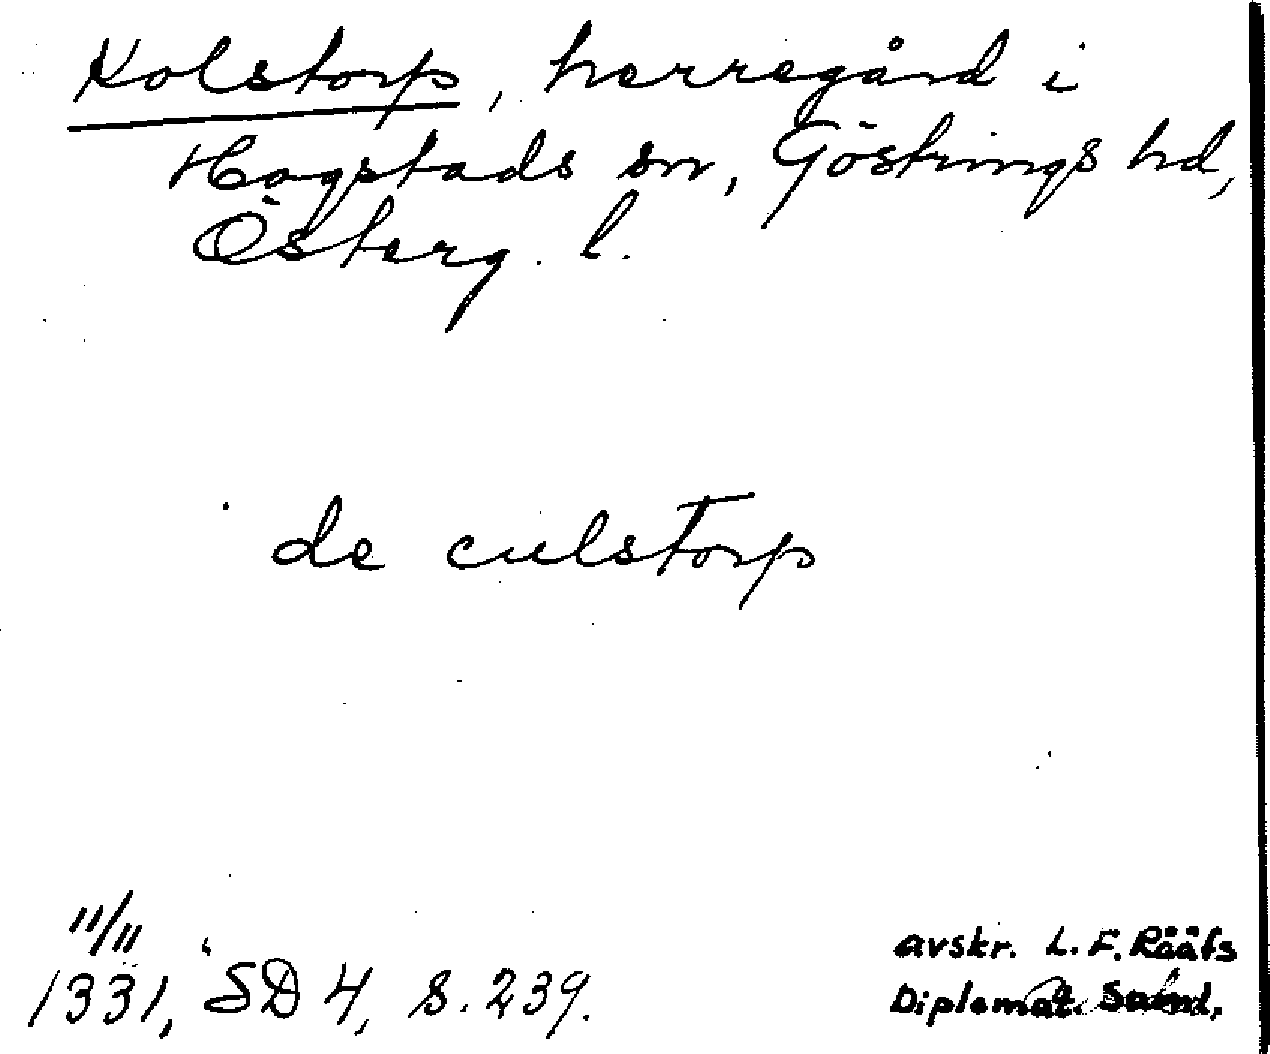 Kolstorp, herregård i
Hogstads sn, Göstrings hd,
Österg. l.
de culstorp
11/11
1331, SD 4, s. 239.
avskr. L. F. Rääfs
Diplomat. Saml.